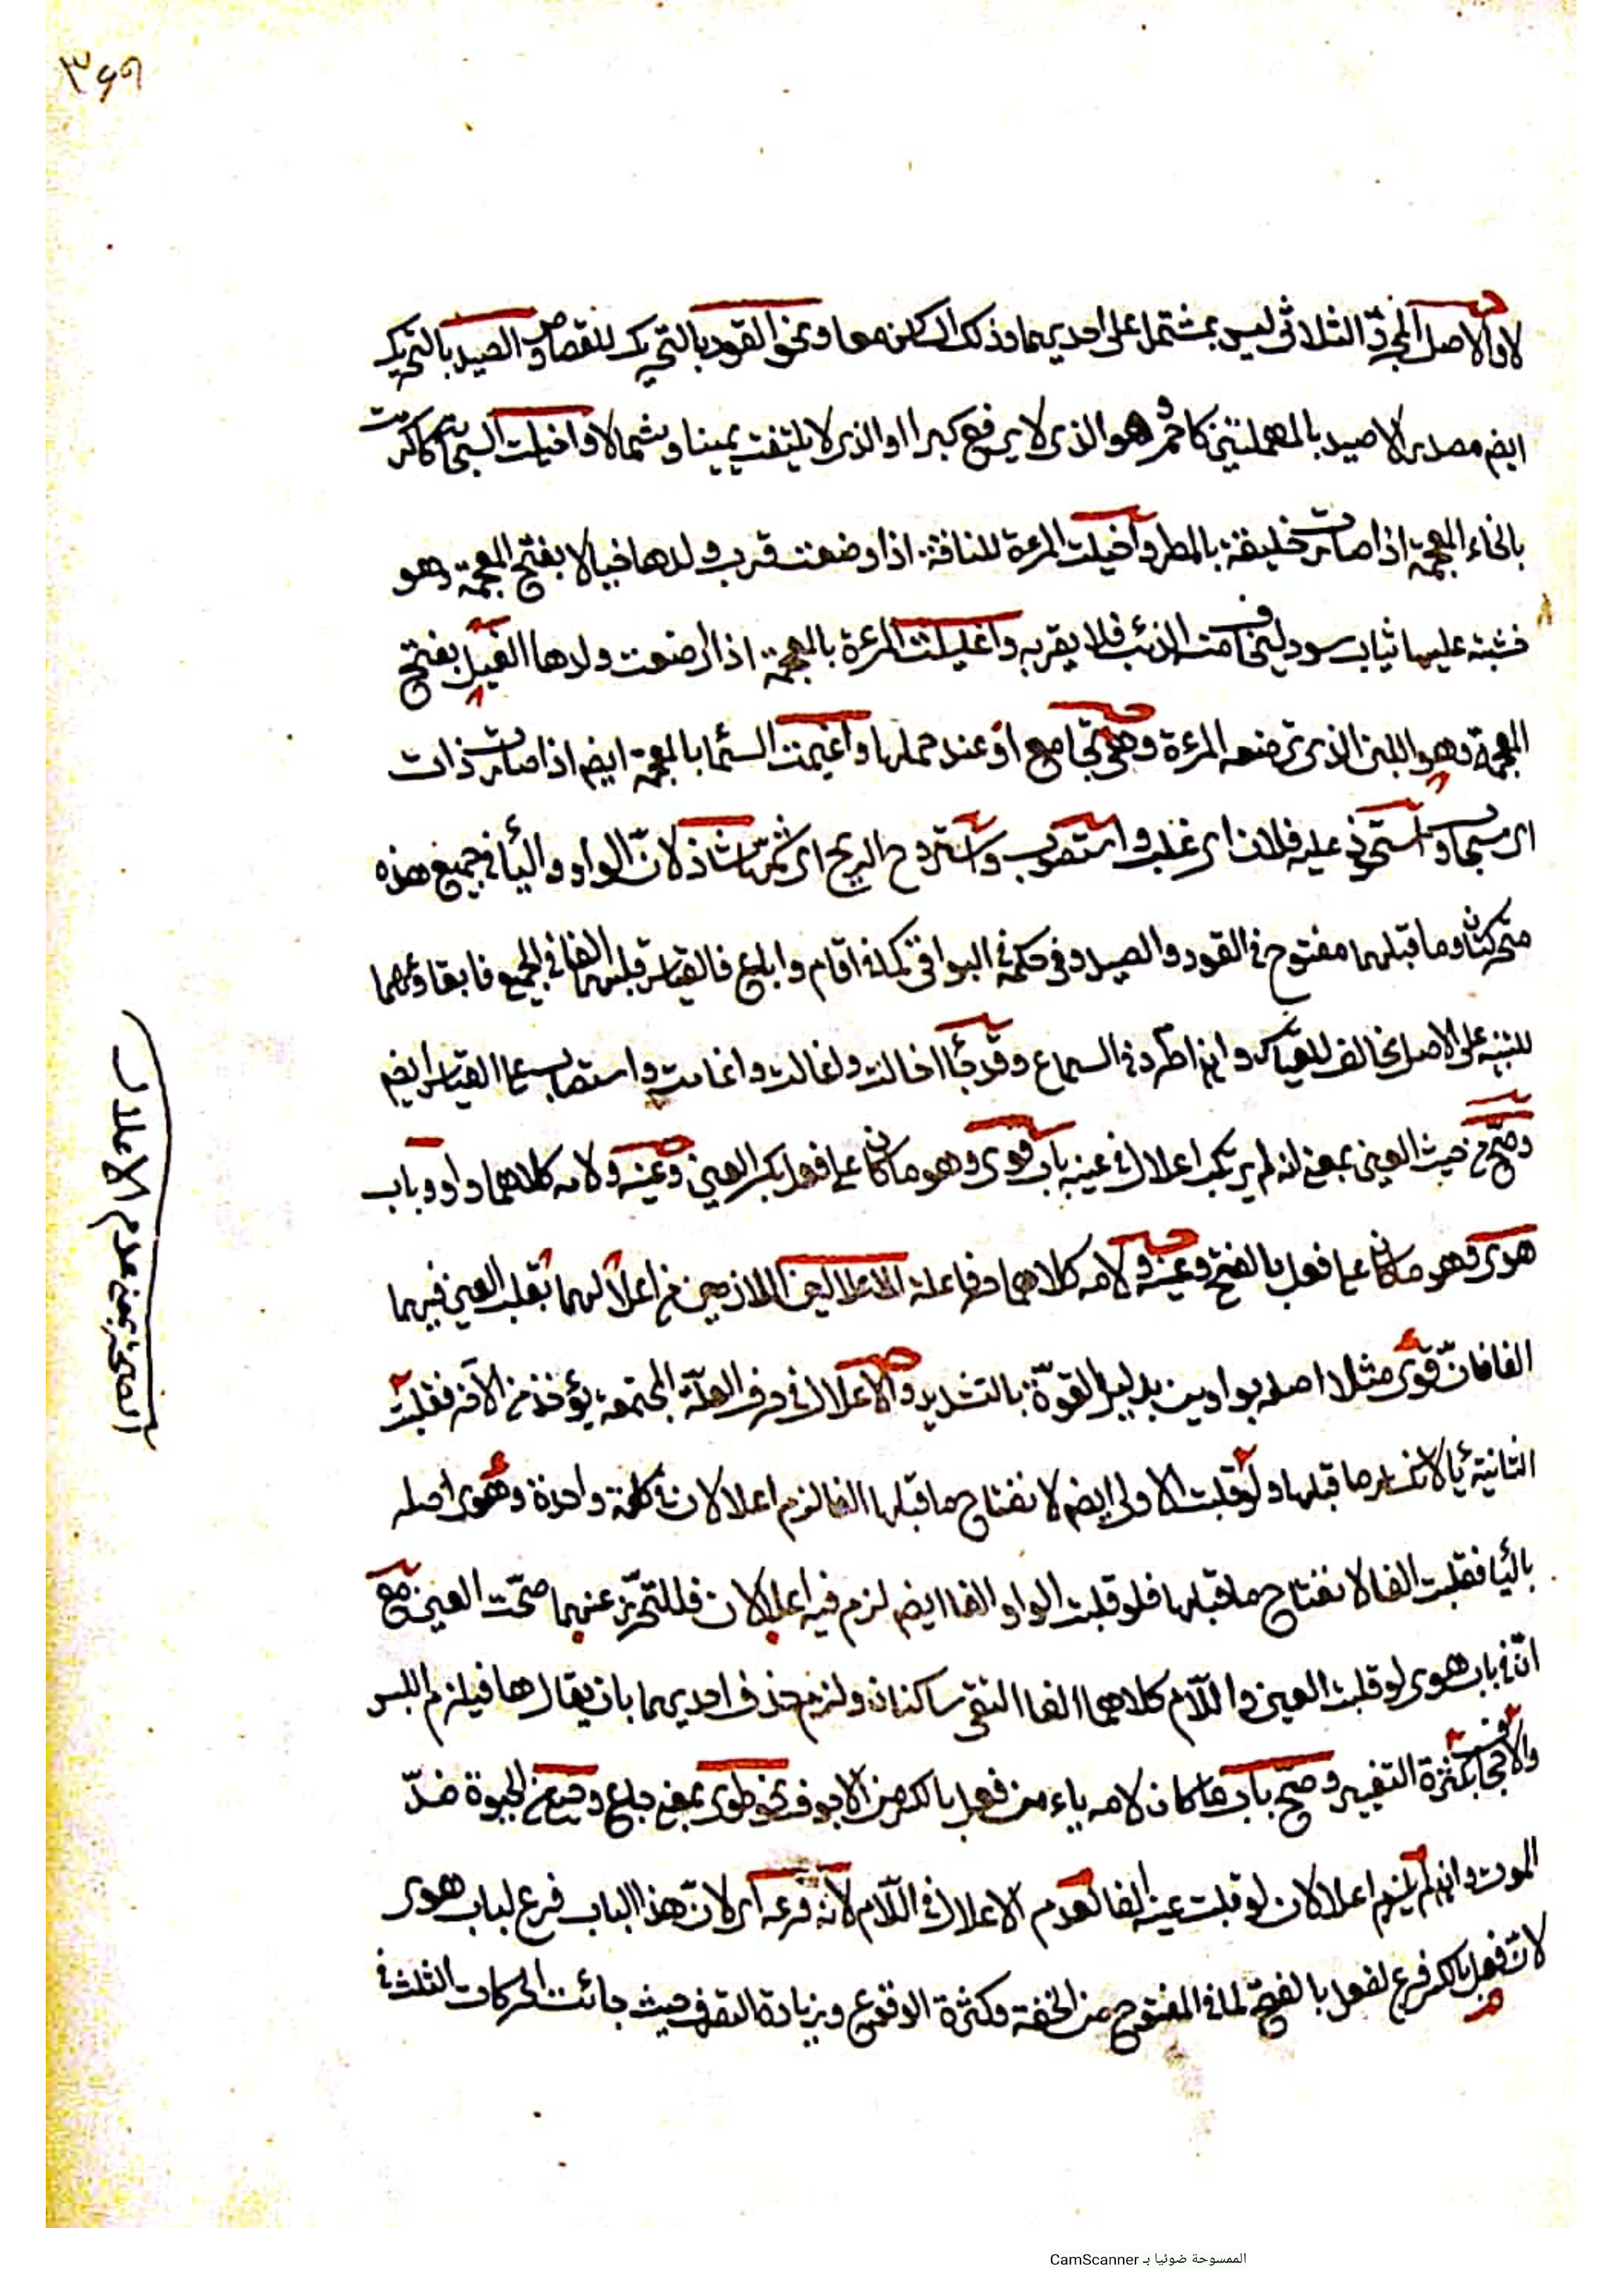 ۳۶۹
لان الاصل المجرد الثلاثى ليس بمشتمل على احديهما وذلك الكلن معا ونحو القود بالتحريك للقصاص والصيد بالتحريك
ايضم مصدر الاصيد بالمهملتين كاحمر وهو الذى لا يرفع كبرا او الذى لا يلتفت يمينا وشمالا واخيلت السحا كاكرمت
بالخاء المعجمة اذا صارت خليقة بالمطر واخيلت المرءة للناقة اذا وضعت قرب ولدها خيالا بفتح المعجمة وهو
خشبة عليها ثياب سود ليخاف منه الذئب فلا يقربه واغيلت المرءة بالمعجمة اذا ارضعت ولدها الغيل بفتح
المعجمة وهو اللبن الذى ترضعه المرءة وهى تجامع او عند حملها واغيمت السئما بالمعجمة ايضم اذا صارت ذات
اى سحاب واستحوذ عليه فلان اى غلب واستصوب واستروح الريح اى شمّ شاذ لانّ الواو واليأ فى جميع هذه
متحركتان وما قبلهما مفتوح فى القود والصيد وفى حكمه فى البواقى كما فى اقام وابايع فالقياس قبلهما الفا فى الجميع فابقاؤهما
للتنبيه على الاصل مخالف للقياس وان اطرد فى السماع وقد جأ اخالت واغالت واغامت واستصاب على القياس ايضم
وصحّ من حيث العين بمعنى انه لم يرتكب اعلال فى عينه باب قوى وهو ما كان على فعل بكسر العين وعينه ولامه كلاهما واو وباب
هوى وهو ما كان على فعل بالفتح وعينه ولامه كلاهما حرفا علة للاعلالين اللازمين من اعلالهما بقلب العين فيهما
الفا فانّ قوى مثلا اصله بواوين بدليل القوّة بالتشديد والاعلال فى حرف العلّة المجتمعة يؤخذ من الآخر فقلبت
الثانية يأ لانكسار ما قبلها ولو قلبت الاولى ايضم لانفتاح ما قبلها الفا لزم اعلالان فى كلمة واحدة وهوى اصله
باليأ فقلبت الفا لانفتاح ما قبلها فلو قلبت الواو الفا ايضم لزم فيه اعلالان فللتحرّز عنهما صحّت العين مع
انّ فى باب هوى لو قلبت العين واللّام كلاهما الفا التقى ساكنان ولزم حذف احديهما بان يقال ها فيلزم اللبس
والاجحاف بكثرة التغيير وصحّ باب ما كان لامه ياء من فعل بالكسر من الاجوف نحو طوى بمعنى جاع وحيى من الحيوة ضدّ
الموت وان لم يلزم اعلالان لو قلبت عينه الفا لعدم الاعلال فى اللّام لانّه فرعه اى لانّ هذا الباب فرع لباب هوى
لانّ فعل بالكسر فرع لفعل بالفتح لما فى المفتوح من الخفة وكثرة الوقوع وزيادة التصرف حيث جائت الحركات الثلث فى
الممسوحة ضوئيا بـ CamScanner